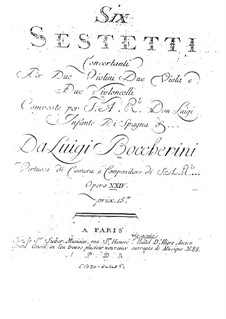 SIX
SESTETTI
Concertanti
Per Due Violini Due Viole e
Due Violoncelli
Composte per S.A.R. Don Luigi
Infante Di Spagna &
Da Luigi Boccherini
Virtuoso di Camera e Compositore di S.A.R.
Opera XXIV
prix. 15
A PARIS
Chez le Sr. Sieber Musicien, rue St. Honoré Hôtel D'Aligre Ancien
Grand Conseil
A P D R